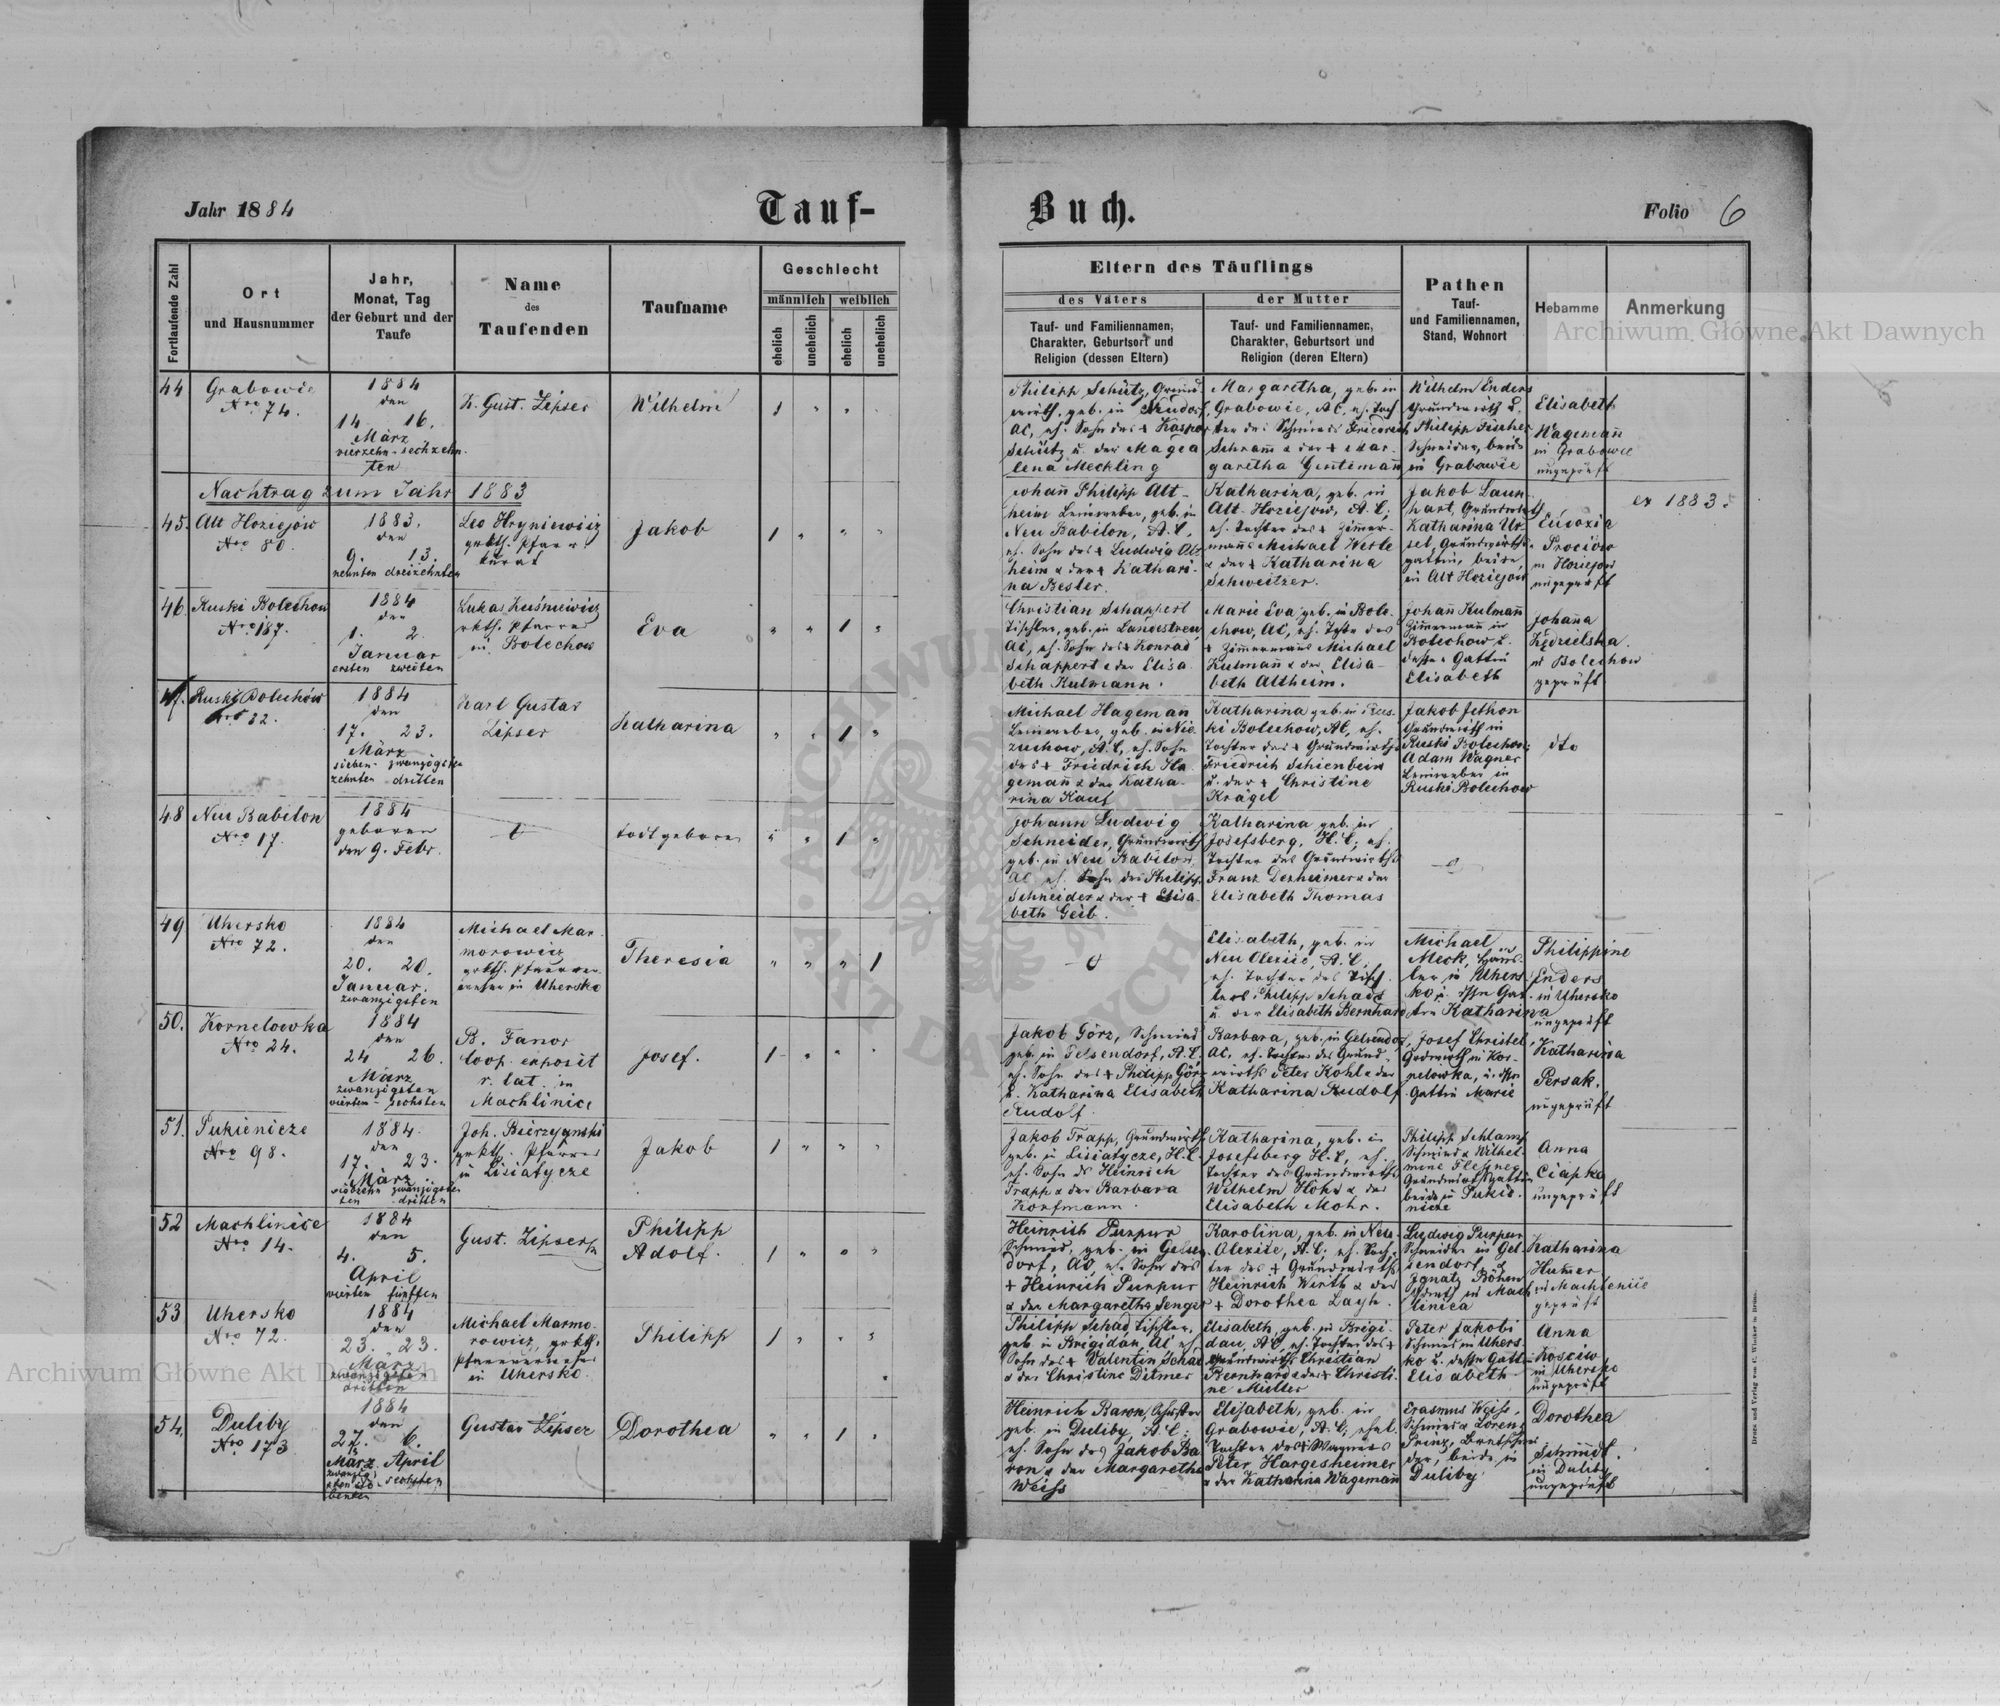 Jahr 1884
Tauf-
Buch.
Folio 6
Fortlaufende Zahl
Ort
und Hausnummer
Jahr,
Monat, Tag
der Geburt und der
Taufe
Name
des
Taufenden
Taufname
Geschlecht
männlich weiblich
ehelich unehelich ehelich unehelich
Eltern des Täuflings
des Vaters
der Mutter
Tauf- und Familiennamen,
Charakter, Geburtsort und
Religion (dessen Eltern)
Tauf- und Familiennamen,
Charakter, Geburtsort und
Religion (deren Eltern)
Pathen
Tauf-
und Familiennamen,
Stand, Wohnort
Hebamme
Anmerkung
Archiwum Główne Akt Dawnych
44
Grabowie
Nro 74.
1884
den
14. 16.
März
vierzehn- sechzehn-
ten
K. Gust. Lipser
Wilhelm
1 " " "
Philipp Schütz, Grund-
wirth, geb. in
AC, eh. Sohn des + Kaspar
Schütz u. der Magda
lena Mechling
Margaretha, geb. in
Grabowie, AC, eh. Toch
ter des Schmieds Friedrich
Schramm & der + Mar-
garetha Gentemann
Wilhelm Enders
Grundwirth &
Philipp Fischer
Schneider, beide
in Grabowie
Elisabeth
Wagemann
in Grabowie
ungeprüft
Nachtrag zum Jahr 1883
45.
Alt Hoziejów
Nro 80.
1883.
den
9. 13.
neunten dreizehnten
Leo Hryniewicz
grkth. Pfarr
Jakob
1 " " "
Johann Philipp Alt-
heim Leinweber, geb. in
Neu Babilon, A.C.
eh. Sohn des + Ludwig Alt
heim & der + Kathari-
na Besler.
Katharina, geb. in
Alt-Hoziejow, A.C.,
eh. Tochter des + Zimmer-
manns Michael Werle
& der + Katharina
Schweitzer.
Jakob Laun
hart, Grundwirth
Katharina Ur
sel, Grundwirths-
gattin, beide
in Alt Hoziejów
Eudoxia
in Hoziejow
ungeprüft
ex 1883.
46.
Ruski Bolechow
Nro 187.
1884
den
1. 2.
Januar
ersten zweiten
Lukas Kuśniewicz
grkth. Pfarrer
in Bolechow
Eva
" " 1 "
Christian Schappert
Tischler, geb. in Landestreu
AC, eh. Sohn des + Konrad
Schappert & der Elisa
beth Kulmann.
Marie Eva, geb. in Bole-
chow, AC, eh. Tochter des
+ Zimmermanns Michael
Kulmann & der Elisa-
beth Altheim.
Johann Kulmann
Zimmermann in
Bolechow u.
dessen Gattin
Elisabeth
Johanna
in Bolechow
geprüft
47.
Ruski Bolechow
Nro 32.
1884
den
17. 23.
März
sieben- zwanzigsten
zehnten dritten
Karl Gustav
Lipser
Katharina
" " 1 "
Michael Hageman
Leinweber, geb. in Nie
zuchow, A.C., eh. Sohn
des + Friedrich Ha
gemann & der Katha-
rina Kauf
Katharina geb. in Rus-
ki Bolechow, AC, eh.
Tochter des + Grundwirths
Friedrich Schienbein
u. der + Christine
Krägel
Jakob Jethon
Grundwirth in
Ruski Bolechow,
Adam Wagner
Leinweber in
Ruski Bolechow
dto
48
Neu Babilon
Nro 17.
1884
geboren
den 9. Febr.
todtgeboren
" " 1 "
Johann Ludwig
Schneider, Grundwirth
geb. in Neu Babilon,
AC, eh. Sohn des Philipp
Schneider & der + Elisa-
beth Geib.
Katharina geb. in
Josefsberg, H.C., eh.
Tochter des Grundwirths
Franz Dexheimer & der
Elisabeth Thomas
49
Uhersko
Nro 72.
1884
den
20. 20.
Januar.
zwanzigsten
Michael Mar
morowicz
grkth. Pfarrver
weser in Uhersko
Theresia
" " " 1
Elisabeth, geb. in
Neu Olexice, A.C.,
eh. Tochter des Tisch
lers Philipp Schad
u. der Elisabeth Bernhard
Michael
Meck,
ler in Uhers
ko, u. dessen Gat-
tin Katharina
Philippine
Enders
in Uhersko
ungeprüft
50.
Kornelowka
Nro 24.
1884
den
24 26.
März
zwanzigsten
vierten- sechsten
B. Fanor
Coop. exposit
r. lat. in
Machlinice
Josef.
1 " " "
Jakob Görz, Schmied
geb. in Gelsendorf, A.C.
eh. Sohn des + Philipp Görz
u. Katharina Elisabeth
Rudolf.
Barbara, geb. in Gelsendorf,
AC, eh. Tochter des Grund-
wirths Peter Kohl & der
Katharina Rudolf
Josef Christel,
Grdwirth in Kor-
nelowka, u. dessen
Gattin Marie
Katharina
Persak.
ungeprüft
51.
Pukienicze
Nro 98.
1884.
den
17. 23.
März
siebzehn zwanzigsten
ten dritten
Joh. Bierzynski
grkth. Pfarrer
in Lisiatycze
Jakob
1 " " "
Jakob Trapp, Grundwirth
geb. in Lisiatycze, H.C.
eh. Sohn d. Heinrich
Trapp & der Barbara
Korfmann.
Katharina, geb. in
Josefsberg H.C., eh.
Tochter des Grundwirths
Wilhelm Höhn & der
Elisabeth Mohr.
Philipp Schlamp
Schmied & Wilhel-
mine Flessner
Grundwirthsgattin
beide in Pukie-
nicze
Anna
Ciapka
ungeprüft
52
Machlinice
Nro 14.
1884
den
4. 5.
April
vierten fünften
Gust. Lipser
Philipp
Adolf.
1 " " "
Heinrich Purpur
Schmied, geb. in Gelsen-
dorf, AC, eh. Sohn des
+ Heinrich Purpur
& der Margaretha Senger
Karolina, geb. in Neu-
Olexice, A.C., eh. Toch-
ter des + Grundwirths
Heinrich Wirth & der
+ Dorothea Layh.
Ludwig Purpur
Schneider in Gel-
sendorf &
Ignatz Böhm
Grdwth in Mach
linice
Katharina
Hummer
in Machlinice
geprüft
53
Uhersko
Nro 72.
1884
den
23. 23.
März
zwanzigsten
dritten
Michael Marmo-
rowicz, grkth.
Pfarrverweser
in Uhersko.
Philipp
1 " " "
Philipp Schad Tischler,
geb. in Brigidau, AC eh.
Sohn des + Valentin Schad
& der Christine Ditmer
Elisabeth, geb. in Brigi-
dau, AC, eh. Tochter des +
Grundwirths Christian
Bernhard & der + Christi-
ne Müller
Peter Jakobi
Schmied in Uhers-
ko u. dessen Gattin
Elisabeth
Anna
Kosciw
in Uhersko
ungeprüft
54.
Duliby
Nro 173
1884
den
27. 6.
März April
zwanzig
sten sie- sechsten
benten
Gustav Lipser
Dorothea
" " 1 "
Heinrich Baron, Schuster
geb. in Duliby, A.C.,
eh. Sohn des Jakob Ba
ron & der Margaretha
Weiss
Elisabeth, geb. in
Grabowie, A.C., ehel.
Tochter des + Wagners
Peter Hargesheimer
& der Katharina Wagemann
Erasmus Weiss,
Schmied & Lorenz
Prinz,
der, beide in
Duliby
Dorothea
Schmidt.
in Duliby
ungeprüft
Archiwum Główne Akt Dawnych